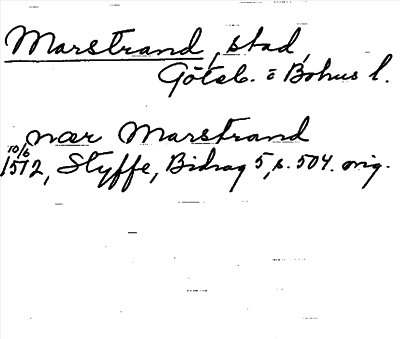 Marstrand, stad,
Göteb. o Bohus l.
nær Marstrand
10/6
1512, Styffe, Bidrag 5, s. 504. orig.